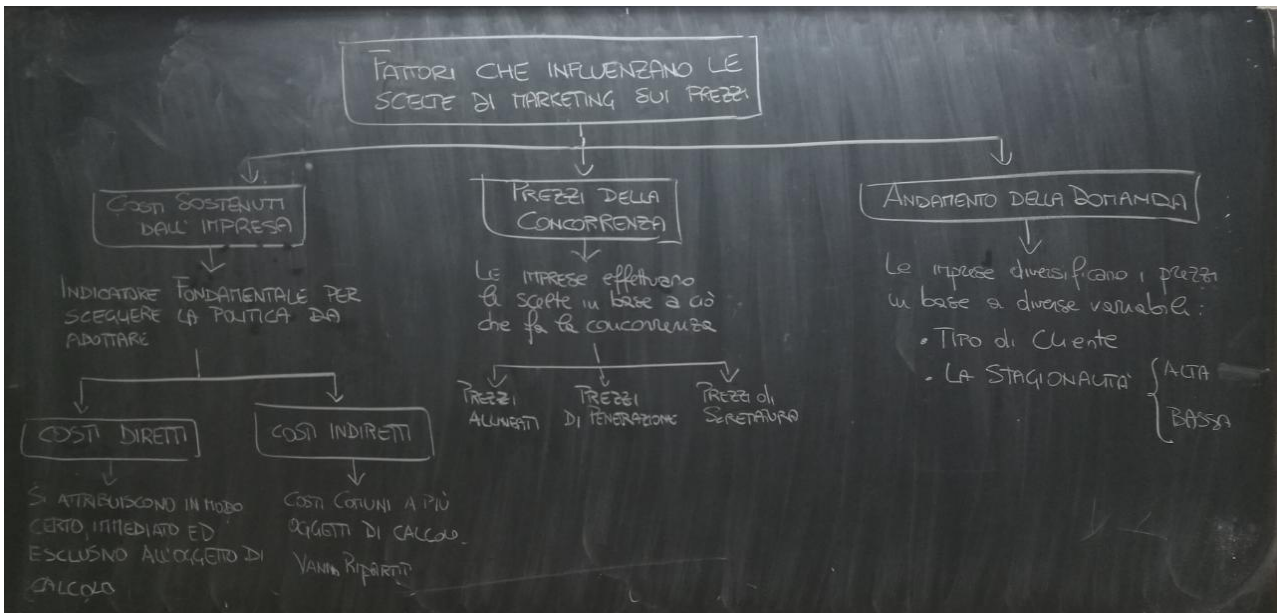 FATTORI CHE INFLUENZANO LE
SCELTE DI MARKETING SUI PREZZI
COSTI SOSTENUTI
DALL'IMPRESA
INDICATORE FONDAMENTALE PER
SCEGLIERE LA POLITICA DA
ADOTTARE
COSTI DIRETTI
SI ATTRIBUISCONO IN MODO
CERTO, IMMEDIATO ED
ESCLUSIVO ALL'OGGETTO DI
CALCOLO
COSTI INDIRETTI
COSTI COMUNI A PIÙ
OGGETTI DI CALCOLO.
VANNO RIPARTITI
PREZZI DELLA
CONCORRENZA
LE IMPRESE effettuano
le scelte in base a ciò
che fa la concorrenza
PREZZI
ALLINEATI
PREZZI
DI PENETRAZIONE
PREZZI di
SCREMATURA
ANDAMENTO DELLA DOMANDA
Le imprese diversificano i prezzi
in base a diverse variabili:
• TIPO di Cliente
• LA STAGIONALITÀ { ALTA
BASSA